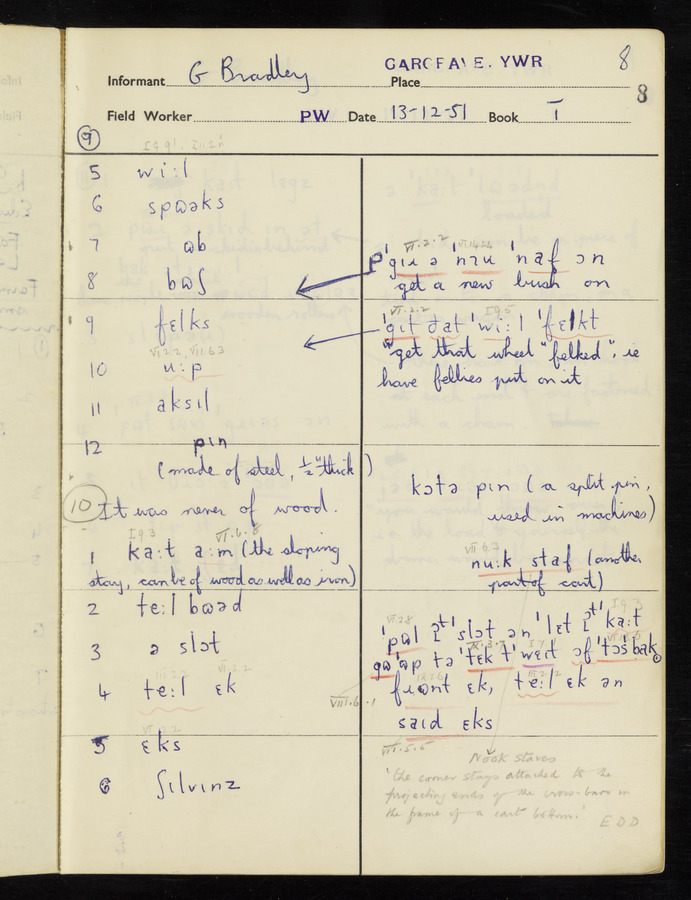 GARGRAVE. YWR
8
Informant G Bradley Place
8
Field Worker PW Date 13-12-51 Book I
9
5 wi:l
6 spɷəks
7 ɷb
8 bɷʃ
9 fɛlks
VI.2.2, VII.6.3
10 u:p
11 aksɪl
12 pɪn
(made of steel, ½" thick)
10 It was never of wood.
I 9 3 VI.6.8
1 ka:t a:m (the sloping
stay, can be of wood as well as iron)
2 te:l bɷəd
3 ə slɔt
4 te:l ɛk
5 ɛks
6 ʃɪlvɪnz
VI.2.2
'gɪɹ ə 'nɪu 'naf ɔn
get a new bush on
VI.2.2 I 9 5
'gɪt ðat 'wi:l 'fɛlkt
get that wheel "felked", ie
have fellies put on it
kɔtə pɪn (a split pin,
used in machines)
VII 6.3
nu:k staf (another
part of cart)
I 9 3
'pɷl ʔt' 'slɔt ən 'lɛt ʔt' 'ka:t
gɷ 'ɷp tə 'tɛk t' wɛɪt ɔf 'tɔsbak
frɷnt ɛk, te:l ɛk ən
saɪd ɛks
VIII.6.1
VII.5.5
Nook staves
'the corner stays attached to the
projecting ends of the cross-bars in
the frame of a cart bottom.'
EDD